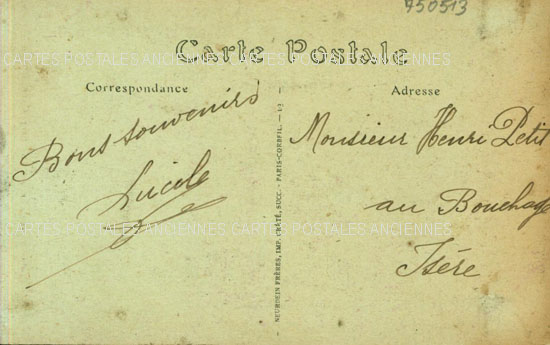 750513
Carte Postale
CARTES POSTALES ANCIENNES CARTES POSTALES ANCIENNES
Correspondance
Bons souvenirs
Lucile
NEURDEIN FRÈRES, IMP. CRÉTÉ, SUCC. — PARIS-CORBEIL.
Adresse
Monsieur Henri Petit
au Bouchage
Isère
CARTES POSTALES ANCIENNES CARTES POSTALES ANCIENNES